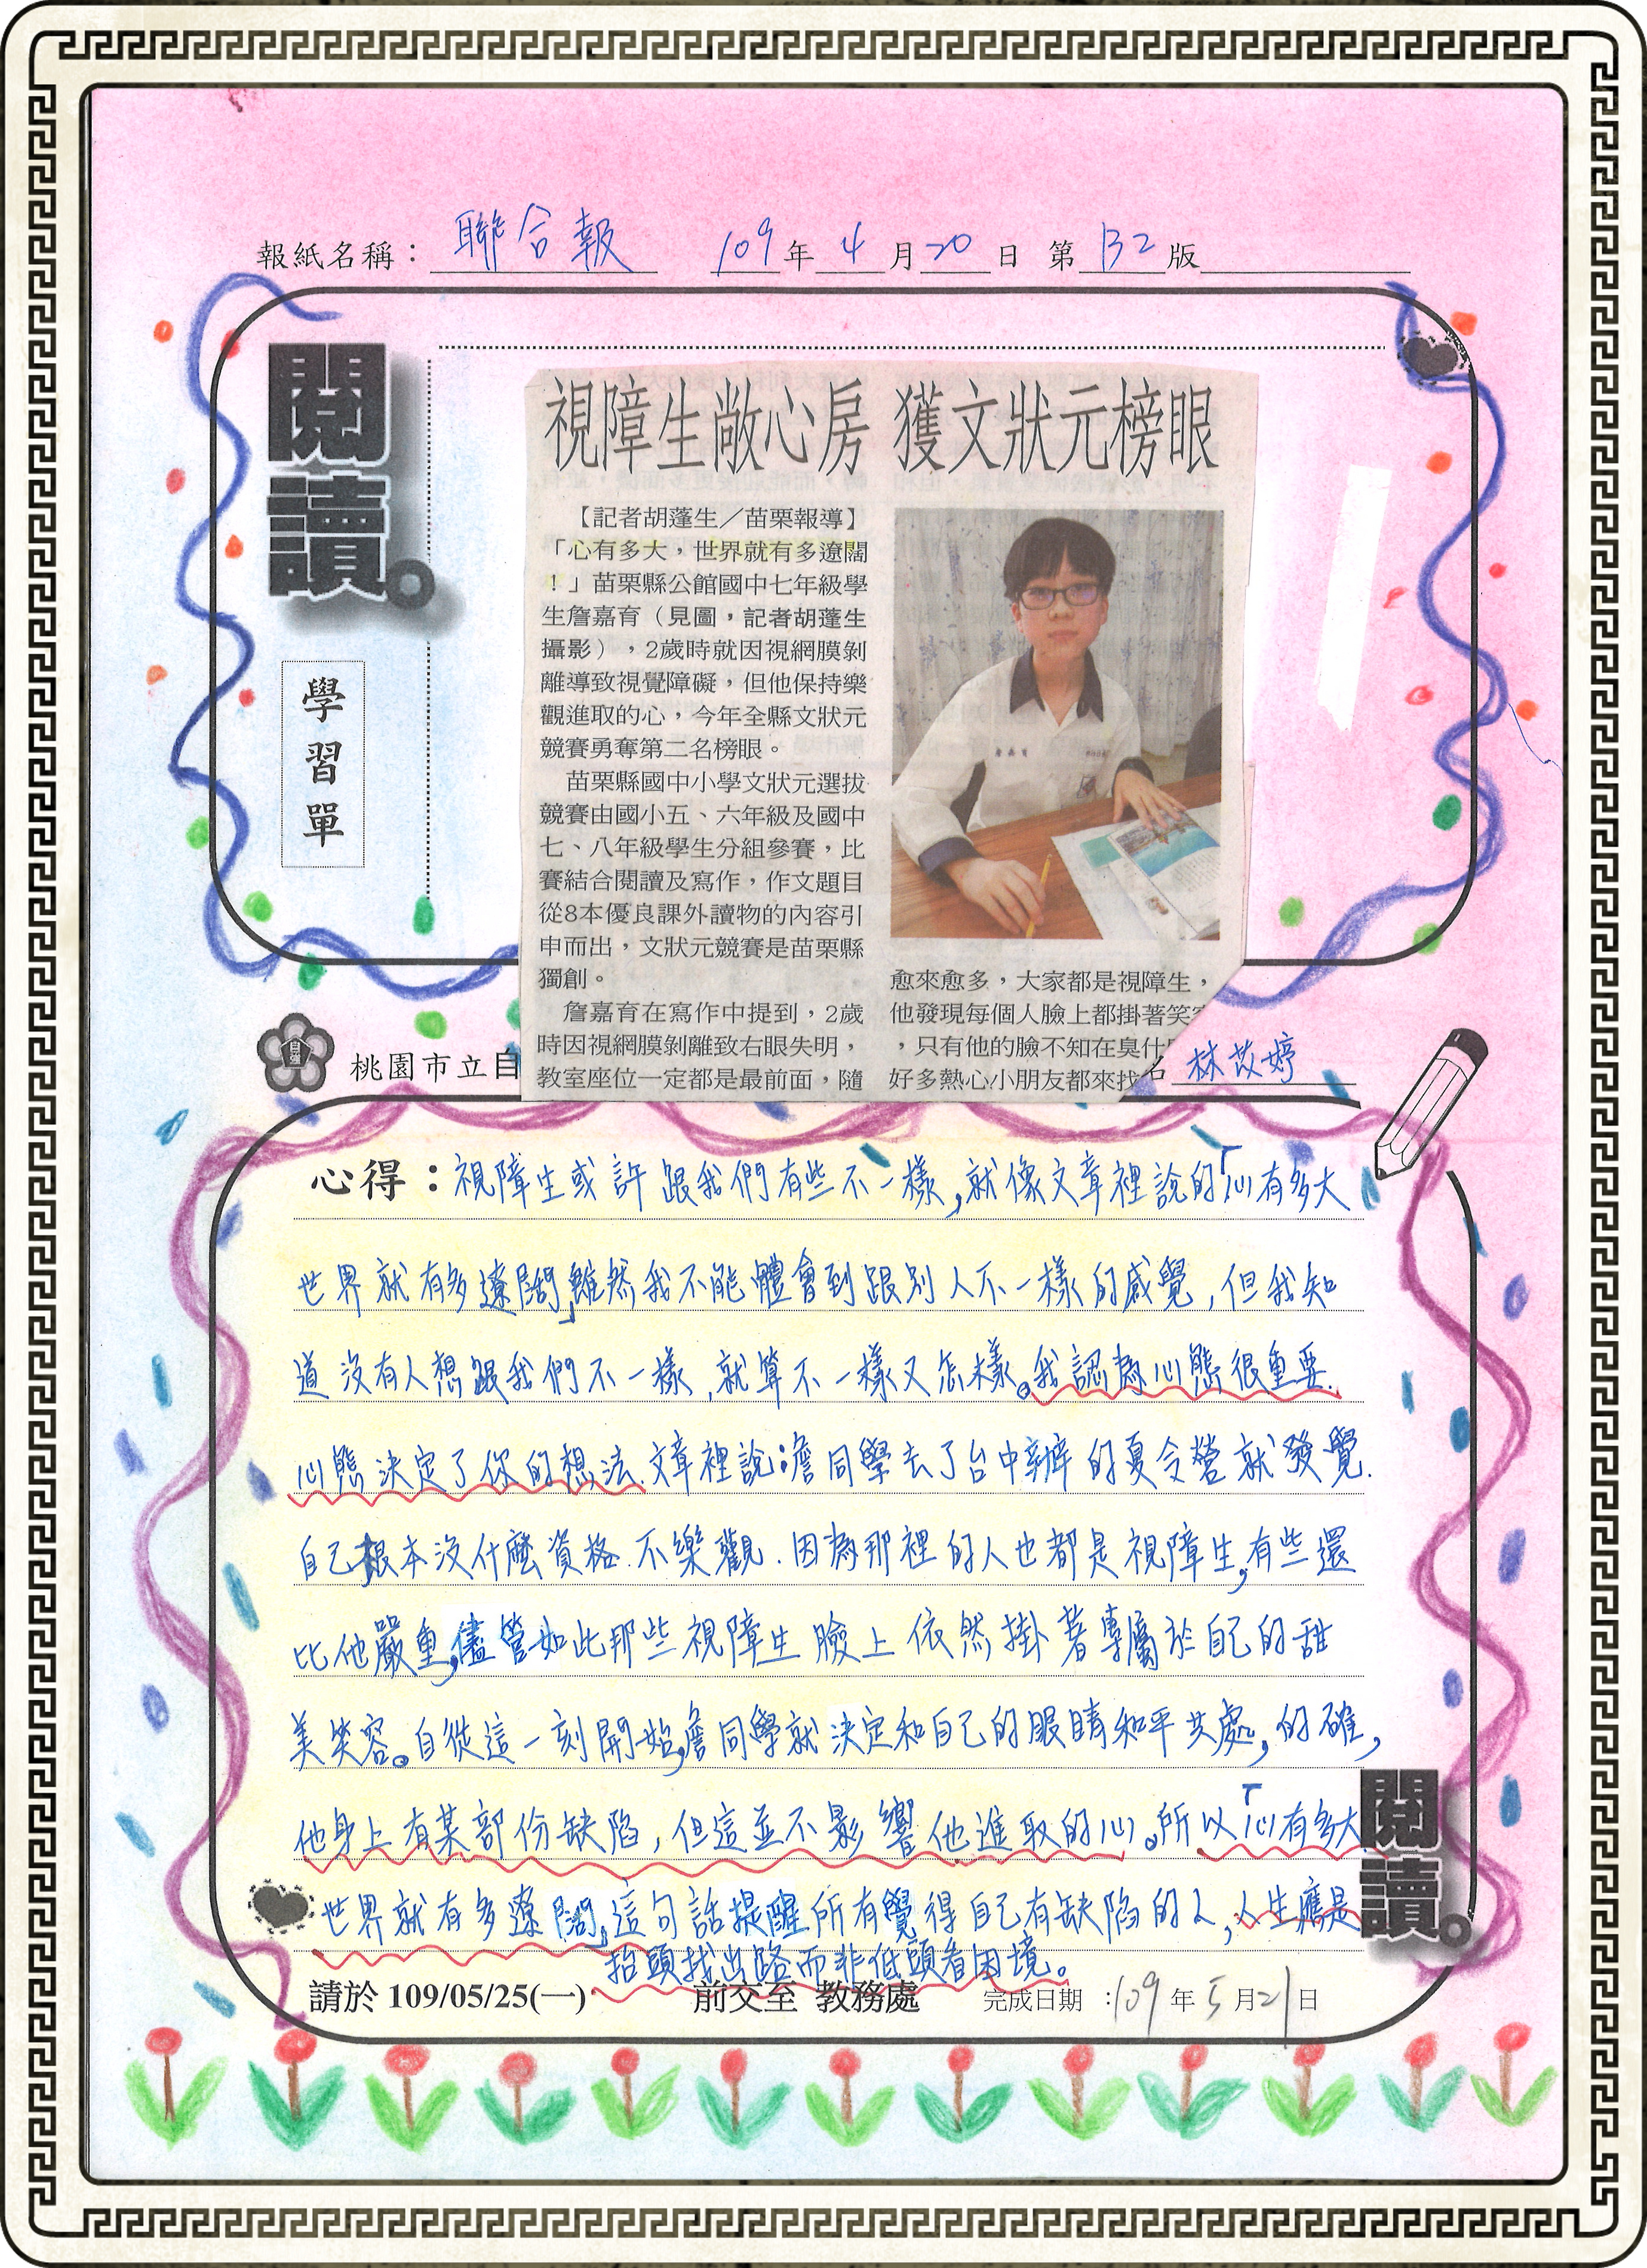 報紙名稱：聯合報 109年4月20日 第B2版
閱讀。
學習單
視障生敞心房 獲文狀元榜眼
【記者胡蓬生／苗栗報導】
「心有多大，世界就有多遼闊
！」苗栗縣公館國中七年級學
生詹嘉育（見圖，記者胡蓬生
攝影），2歲時就因視網膜剝
離導致視覺障礙，但他保持樂
觀進取的心，今年全縣文狀元
競賽勇奪第二名榜眼。
苗栗縣國中小學文狀元選拔
競賽由國小五、六年級及國中
七、八年級學生分組參賽，比
賽結合閱讀及寫作，作文題目
從8本優良課外讀物的內容引
申而出，文狀元競賽是苗栗縣
獨創。
詹嘉育在寫作中提到，2歲
時因視網膜剝離致右眼失明，
教室座位一定都是最前面，隨
愈來愈多，大家都是視障生，
他發現每個人臉上都掛著笑容
，只有他的臉不知在臭什
好多熱心小朋友都來找
自強
桃園市立自
名 林苡婷
心得：視障生或許跟我們有些不一樣，就像文章裡說的「心有多大
世界就有多遼闊」雖然我不能體會到跟別人不一樣的感覺，但我知
道沒有人想跟我們不一樣，就算不一樣又怎樣。我認為心態很重要.
心態決定了你的想法.文章裡說：詹同學去了台中辦的夏令營就發覺.
自己根本沒什麼資格.不樂觀.因為那裡的人也都是視障生，有些還
比他嚴重，儘管如此那些視障生臉上依然掛著專屬於自己的甜
美笑容。自從這一刻開始，詹同學就決定和自己的眼睛和平共處，的確，
他身上有某部份缺陷，但這並不影響他進取的心。所以「心有多大
世界就有多遼闊」這句話提醒所有覺得自己有缺陷的人，人生應是
抬頭找出路而非低頭看困境。
閱讀。
請於 109/05/25(一) 前交至 教務處 完成日期：109年5月21日